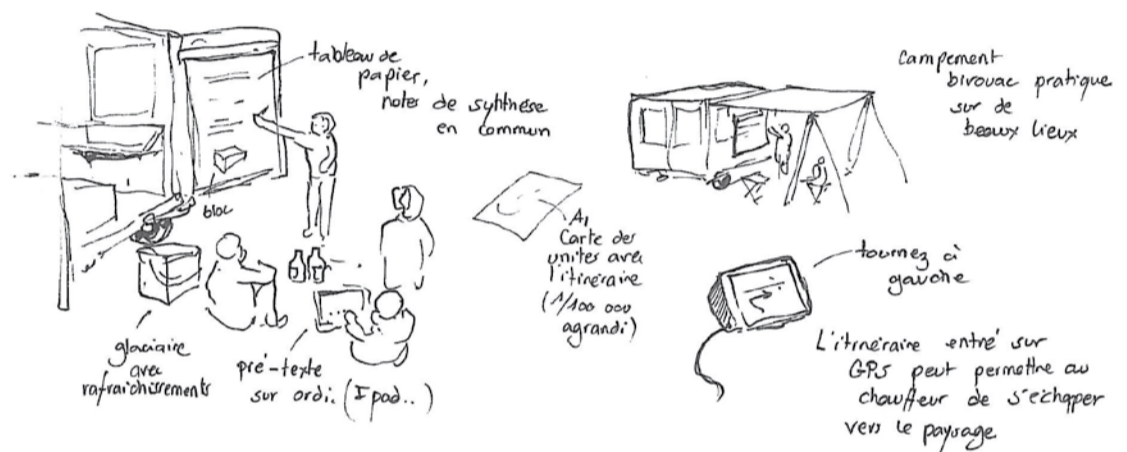 tableau de
papier,
notes de synthèse
en commun
bloc
glaciaire
avec
rafraichissements
pré-texte
sur ordi. (Ipad..)
A1
Carte des
unites avec
l'itinéraire
(1/100 000
agrandi)
Campement
bivouac pratique
sur de
beaux lieux
tournez à
gauche
L'itinéraire entré sur
GPS peut permettre au
chauffeur de s'échapper
vers le paysage